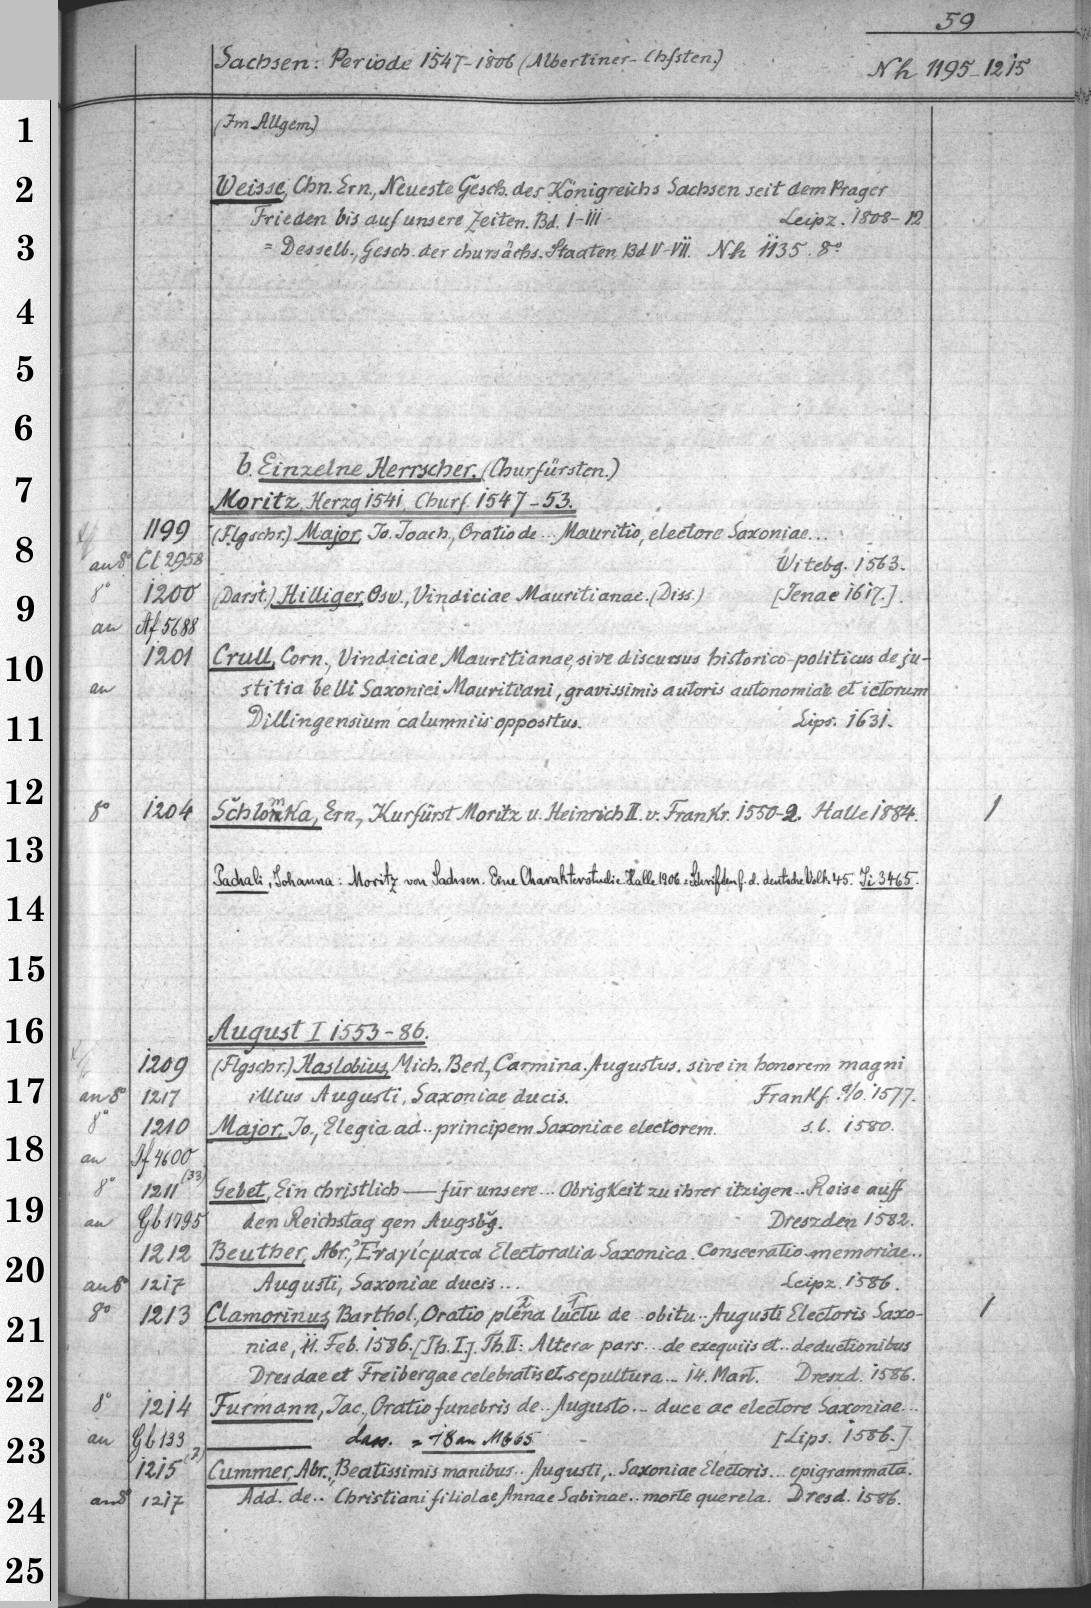 59
Sachsen: Periode 1547-1806 (Albertiner-Chfsten.)
Nh 1195-1215
1
(Im Allgem.)
2
Weisse, Chn. Ern., Neueste Gesch. des Königreichs Sachsen seit dem Prager
Frieden bis auf unsere Zeiten. Bd. I-III Leipz. 1808-12
3
= Desselb., Gesch. der chursächs. Staaten Bd V-VII. Nh 1135. 8°
4
5
6
b. Einzelne Herrscher. (Churfürsten.)
7
Moritz, Herzg 1541, Churf. 1547-53.
1199 (Flgschr.) Major, Jo. Joach., Oratio de... Mauritio, electore Saxoniae...
8
an 8° Cl 2958 Witebg. 1563.
8° 1200 (Darst.) Hilliger, Osw., Vindiciae Mauritianae. (Diss.) [Jenae 1617.].
9
an Af 5688
1201 Crull, Corn., Vindiciae Mauritianae, sive discursus historico-politicus de ju-
10
an stitia belli Saxonici Mauritiani, gravissimis autoris autonomiae et ictorum
11
Dillingensium calumniis oppositus. Lips. 1631.
12
8° 1204 Schlomka, Ern., Kurfürst Moritz u. Heinrich II. v. Frankr. 1550-2. Halle 1884. 1
13
Pachali, Johanna: Moritz von Sachsen. Eine Charakterstudie Halle 1906 = Schriften f. d. deutsche Volk 45. Ji 3465.
14
15
16
August I 1553-86.
1209 (Flgschr.) Haslobius, Mich. Berl., Carmina. Augustus. sive in honorem magni
17
an 8° 1217 illius Augusti, Saxoniae ducis. Frankf. a/O. 1577.
8° 1210 Major, Jo., Elegia ad.. principem Saxoniae electorem. s.l. 1580.
18
an If 4600 (33)
8° 1211 Gebet, Ein christlich — für unsere... Obrigkeit zu ihrer itzigen.. Reise auff
19
an Gb 1795 den Reichstag gen Augsbg. Dreszden 1582.
1212 Beuther, Abr., Ἐναγίσματα Electoralia Saxonica. Consecratio memoriae..
20
an 8° 1217 Augusti, Saxoniae ducis... Leipz. 1586.
8° 1213 Clamorinus, Barthol., Oratio plena luctu de obitu.. Augusti Electoris Saxo- 1
21
niae, 11. Feb. 1586. [Th. I.] Th. II: Altera pars... de exequiis et.. deductionibus
22
Dresdae et Freibergae celebratis et sepultura... 14. Mart. Dreszd. 1586.
8° 1214 Furmann, Jac., Oratio funebris de.. Augusto... duce ac electore Saxoniae...
23
an Gb 133 (2) dass. = 18 an M 665 [Lips. 1586.]
1215 Cummer, Abr., Beatissimis manibus.. Augusti,.. Saxoniae Electoris... epigrammata.
24
an 8° 1217 Add. de.. Christiani filiolae Annae Sabinae.. morte querela. Dresd. 1586.
25